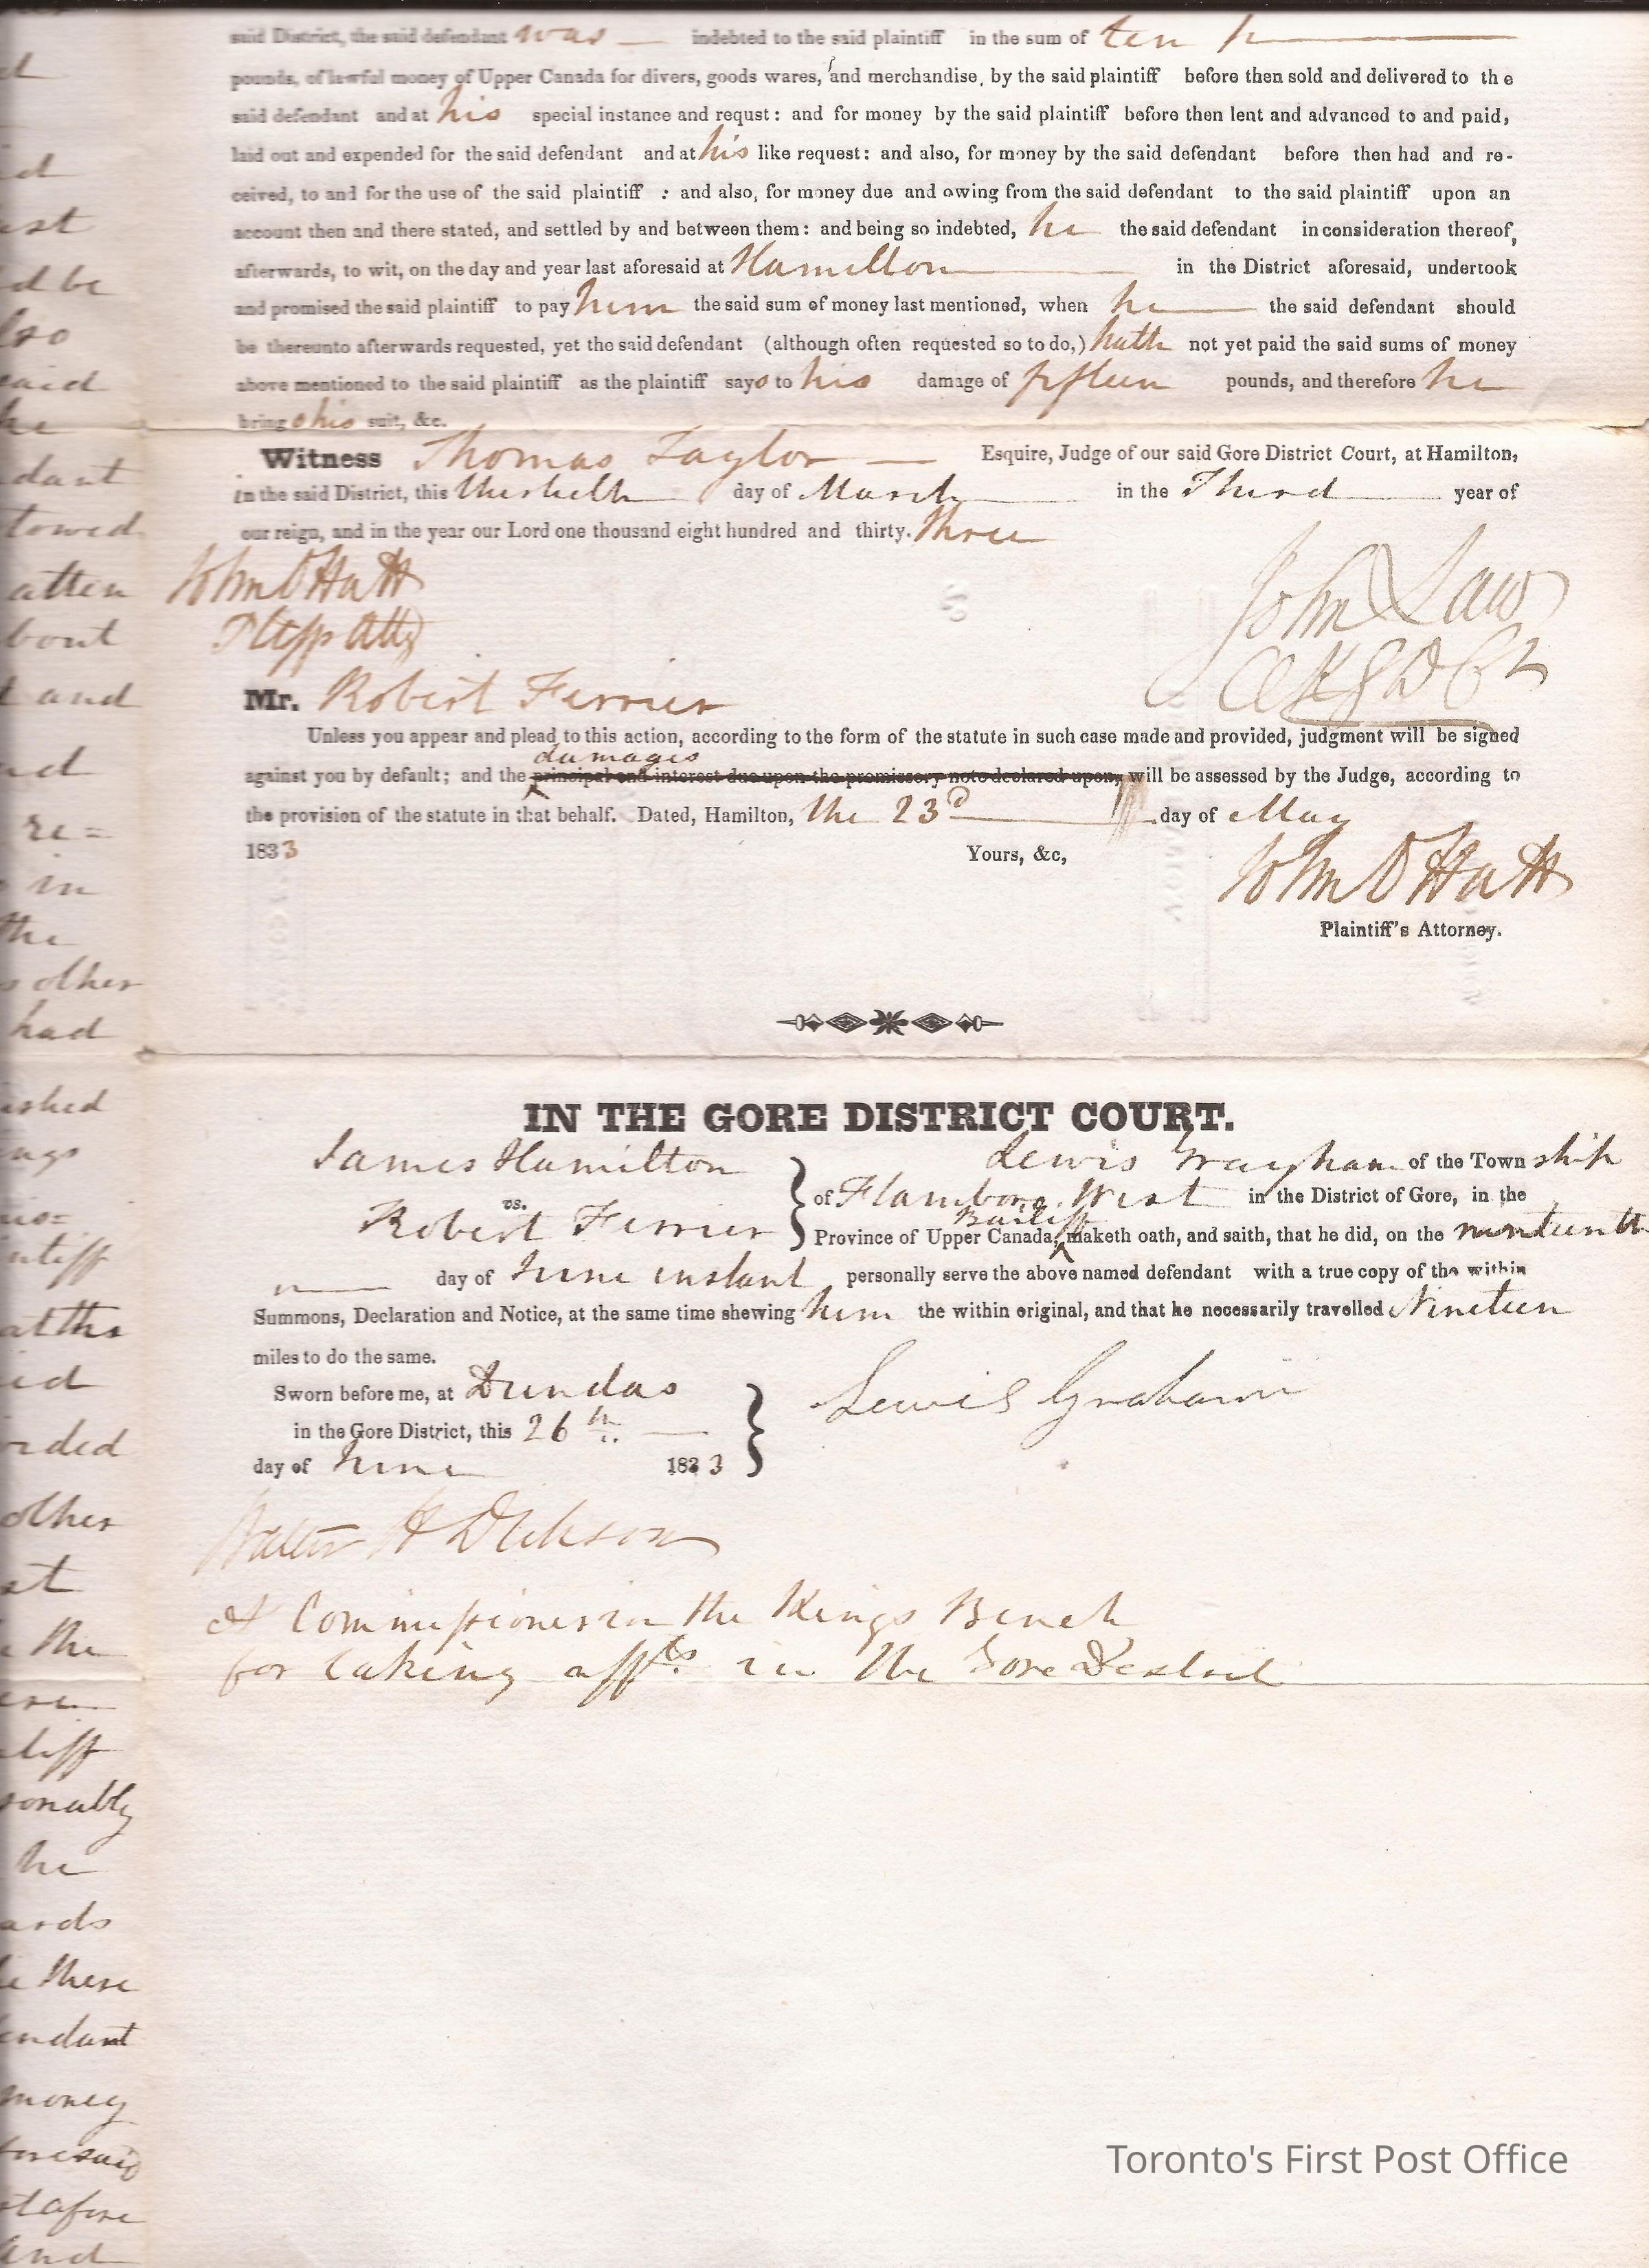 said District, the said defendant was indebted to the said plaintiff in the sum of ten
pounds, of lawful money of Upper Canada for divers, goods wares, and merchandise, by the said plaintiff before then sold and delivered to the
said defendant and at his special instance and requst: and for money by the said plaintiff before then lent and advanced to and paid,
laid out and expended for the said defendant and at his like request: and also, for money by the said defendant before then had and re-
ceived, to and for the use of the said plaintiff : and also, for money due and owing from the said defendant to the said plaintiff upon an
account then and there stated, and settled by and between them: and being so indebted, he the said defendant in consideration thereof,
afterwards, to wit, on the day and year last aforesaid at Hamilton in the District aforesaid, undertook
and promised the said plaintiff to pay him the said sum of money last mentioned, when he the said defendant should
be thereunto afterwards requested, yet the said defendant (although often requested so to do,) hath not yet paid the said sums of money
above mentioned to the said plaintiff as the plaintiff says to his damage of fifteen pounds, and therefore he
brings his suit, &c.
Witness Thomas Taylor Esquire, Judge of our said Gore District Court, at Hamilton,
in the said District, this thirtieth day of March in the Third year of
our reign, and in the year our Lord one thousand eight hundred and thirty. three
John O Hatt
Plffs Atty
John Law
Mr. Robert Ferrier
Unless you appear and plead to this action, according to the form of the statute in such case made and provided, judgment will be signed
damages
against you by default; and the principal and interest due upon the promissory note declared upon, will be assessed by the Judge, according to
the provision of the statute in that behalf. Dated, Hamilton, the 23d day of May
1833 Yours, &c,
John O Hatt
Plaintiff's Attorney.
IN THE GORE DISTRICT COURT.
James Hamilton
vs.
Robert Ferrier
Lewis Grayham of the Township
of Flamboro West in the District of Gore, in the
Bailiff
Province of Upper Canada, maketh oath, and saith, that he did, on the nineteenth
day of June instant personally serve the above named defendant with a true copy of the within
Summons, Declaration and Notice, at the same time shewing him the within original, and that he necessarily travelled Nineteen
miles to do the same.
Sworn before me, at Dundas
in the Gore District, this 26th
day of June 1833
Lewis Graham
Walter H Dickson
A Commissioner in the Kings Bench
for taking affts in the Gore District
st
d be
also
said
he
dant
towed
bout
and
re=
in
the
other
had
at the
other
the
he
these
money
aforesaid
and
Toronto's First Post Office